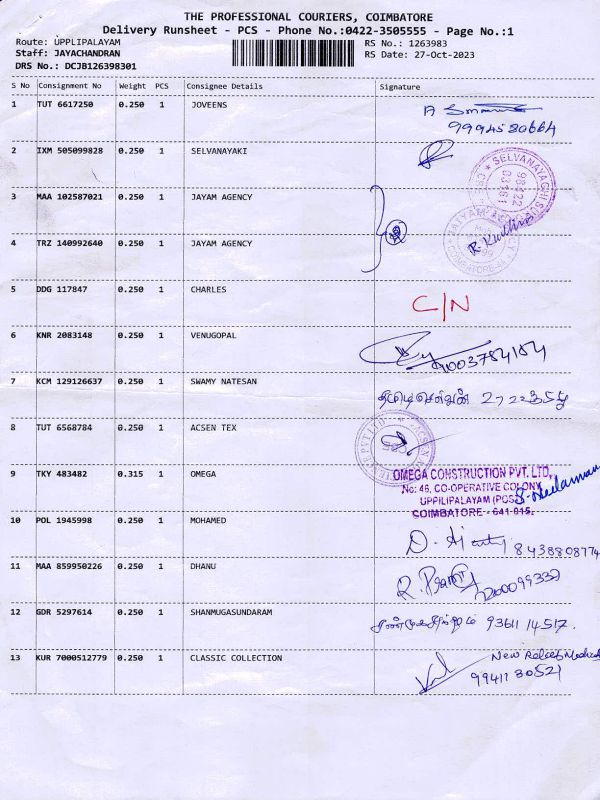 THE PROFESSIONAL COURIERS, COIMBATORE
Delivery Runsheet - PCS - Phone No.:0422-3505555 - Page No.:1
Route: UPPLIPALAYAM RS No.: 1263983
Staff: JAYACHANDRAN RS Date: 27-Oct-2023
DRS No.: DCJB126398301
S No Consignment No Weight PCS Consignee Details Signature
1 TUT 6617250 0.250 1 JOVEENS
9994580664
2 IXM 505099828 0.250 1 SELVANAYAKI
3 MAA 102587021 0.250 1 JAYAM AGENCY
4 TRZ 140992640 0.250 1 JAYAM AGENCY
5 DDG 117847 0.250 1 CHARLES C/N
6 KNR 2083148 0.250 1 VENUGOPAL
7 KCM 129126637 0.250 1 SWAMY NATESAN
8 TUT 6568784 0.250 1 ACSEN TEX
9 TKY 483482 0.315 1 OMEGA
OMEGA CONSTRUCTION PVT. LTD,
No: 46, CO-OPERATIVE COLONY,
UPPILIPALAYAM (POST)
COIMBATORE - 641 015.
10 POL 1945998 0.250 1 MOHAMED
8438808774
11 MAA 859950226 0.250 1 DHANU
12 GDR 5297614 0.250 1 SHANMUGASUNDARAM
93611 14517.
13 KUR 7000512779 0.250 1 CLASSIC COLLECTION
9941180521